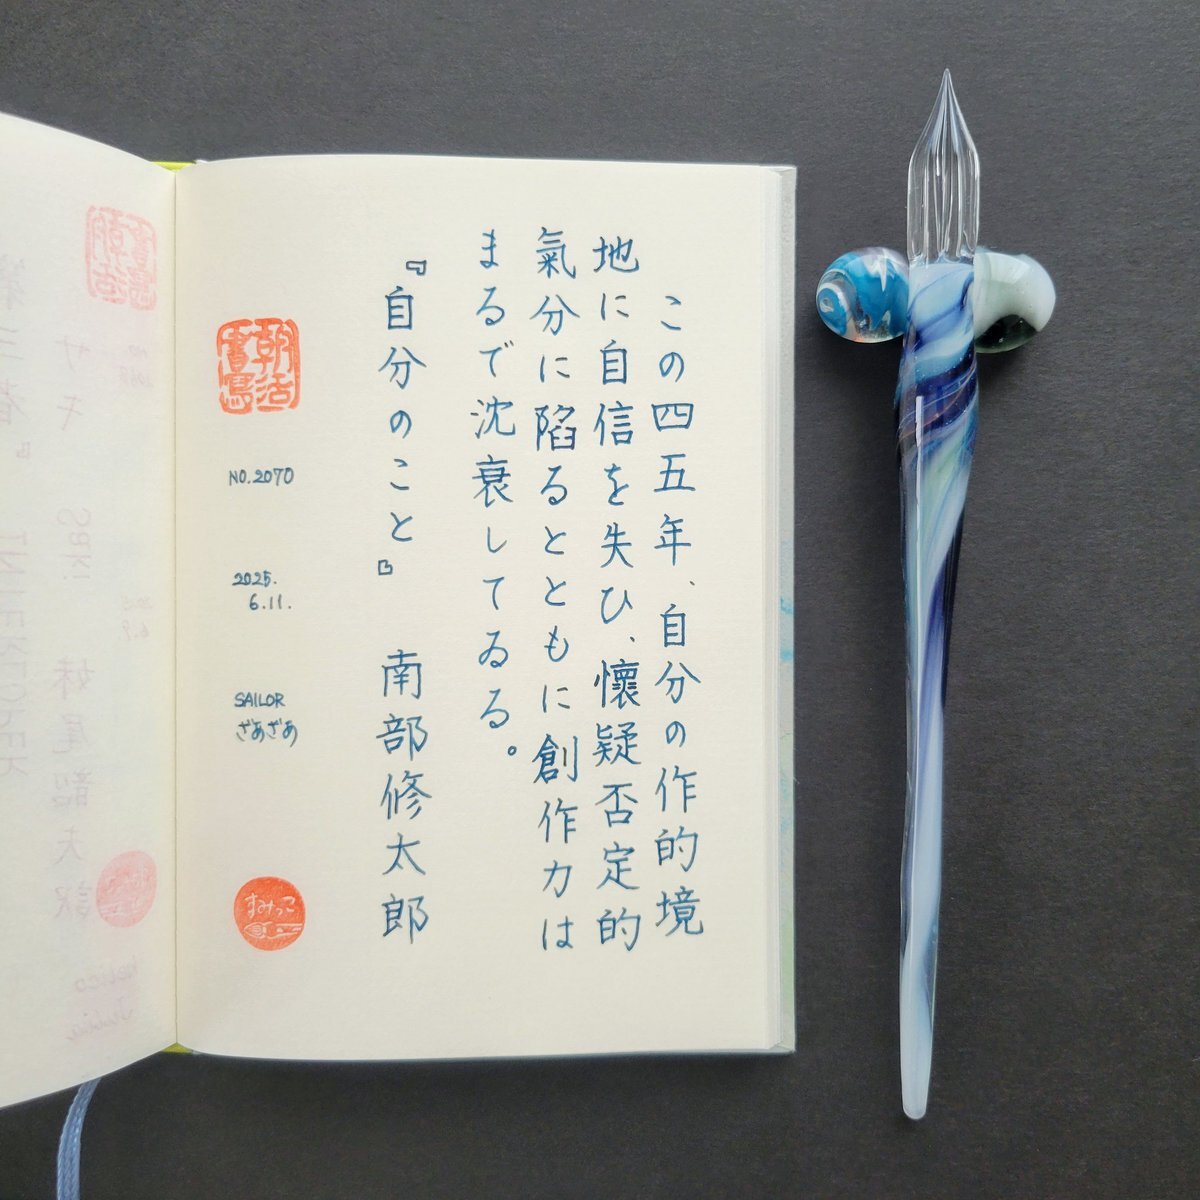 この四五年、自分の作的境
地に自信を失ひ、懷疑否定的
氣分に陷るとともに創作力は
まるで沈衰してゐる。
『自分のこと』 南部修太郎
朝活書寫
NO.2070
2025.
6.11.
SAILOR
ざあざあ
すみっこ